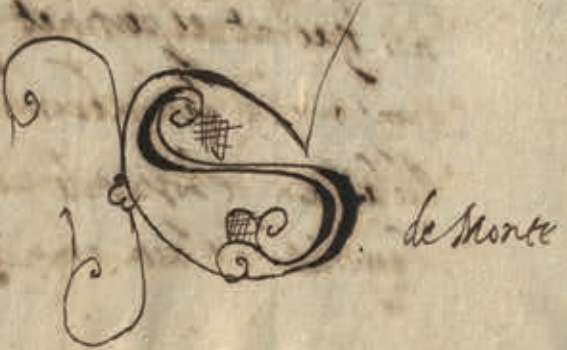 S de Monte